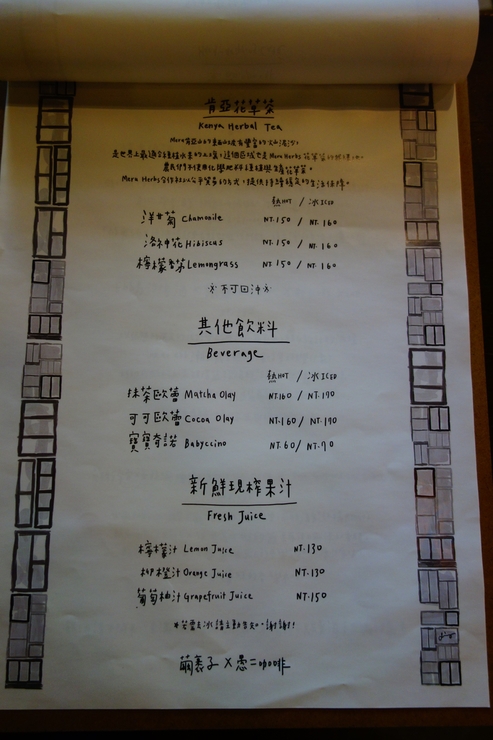 肯亞花草茶
Kenya Herbal Tea
Meru 肯亞山的東北部有豐富的火山泥沙,
是世界上最適合種植水果的土壤,這個區域也是 Meru Herbs 花草茶的
農民們不使用化學肥料種植與生產花草茶。
Meru Herbs 合作社以公平貿易的方式,提供持續穩定的生活保障。
熱HOT / 冰ICED
洋甘菊 Chamomile NT.150 / NT.160
洛神花 Hibiscus NT.150 / NT.160
檸檬香茶 Lemongrass NT.150 / NT.160
※不可回沖※
其他飲料
Beverage
熱HOT / 冰ICED
抹茶歐蕾 Matcha Olay NT.160 / NT.190
可可歐蕾 Cocoa Olay NT.160 / NT.190
寶寶奇諾 Babyccino NT.60 / NT.70
新鮮現榨果汁
Fresh Juice
檸檬汁 Lemon Juice NT.130
柳橙汁 Orange Juice NT.130
葡萄柚汁 Grapefruit Juice NT.150
*若需去冰請主動告知,謝謝!
繭裹子 X 愚二咖啡